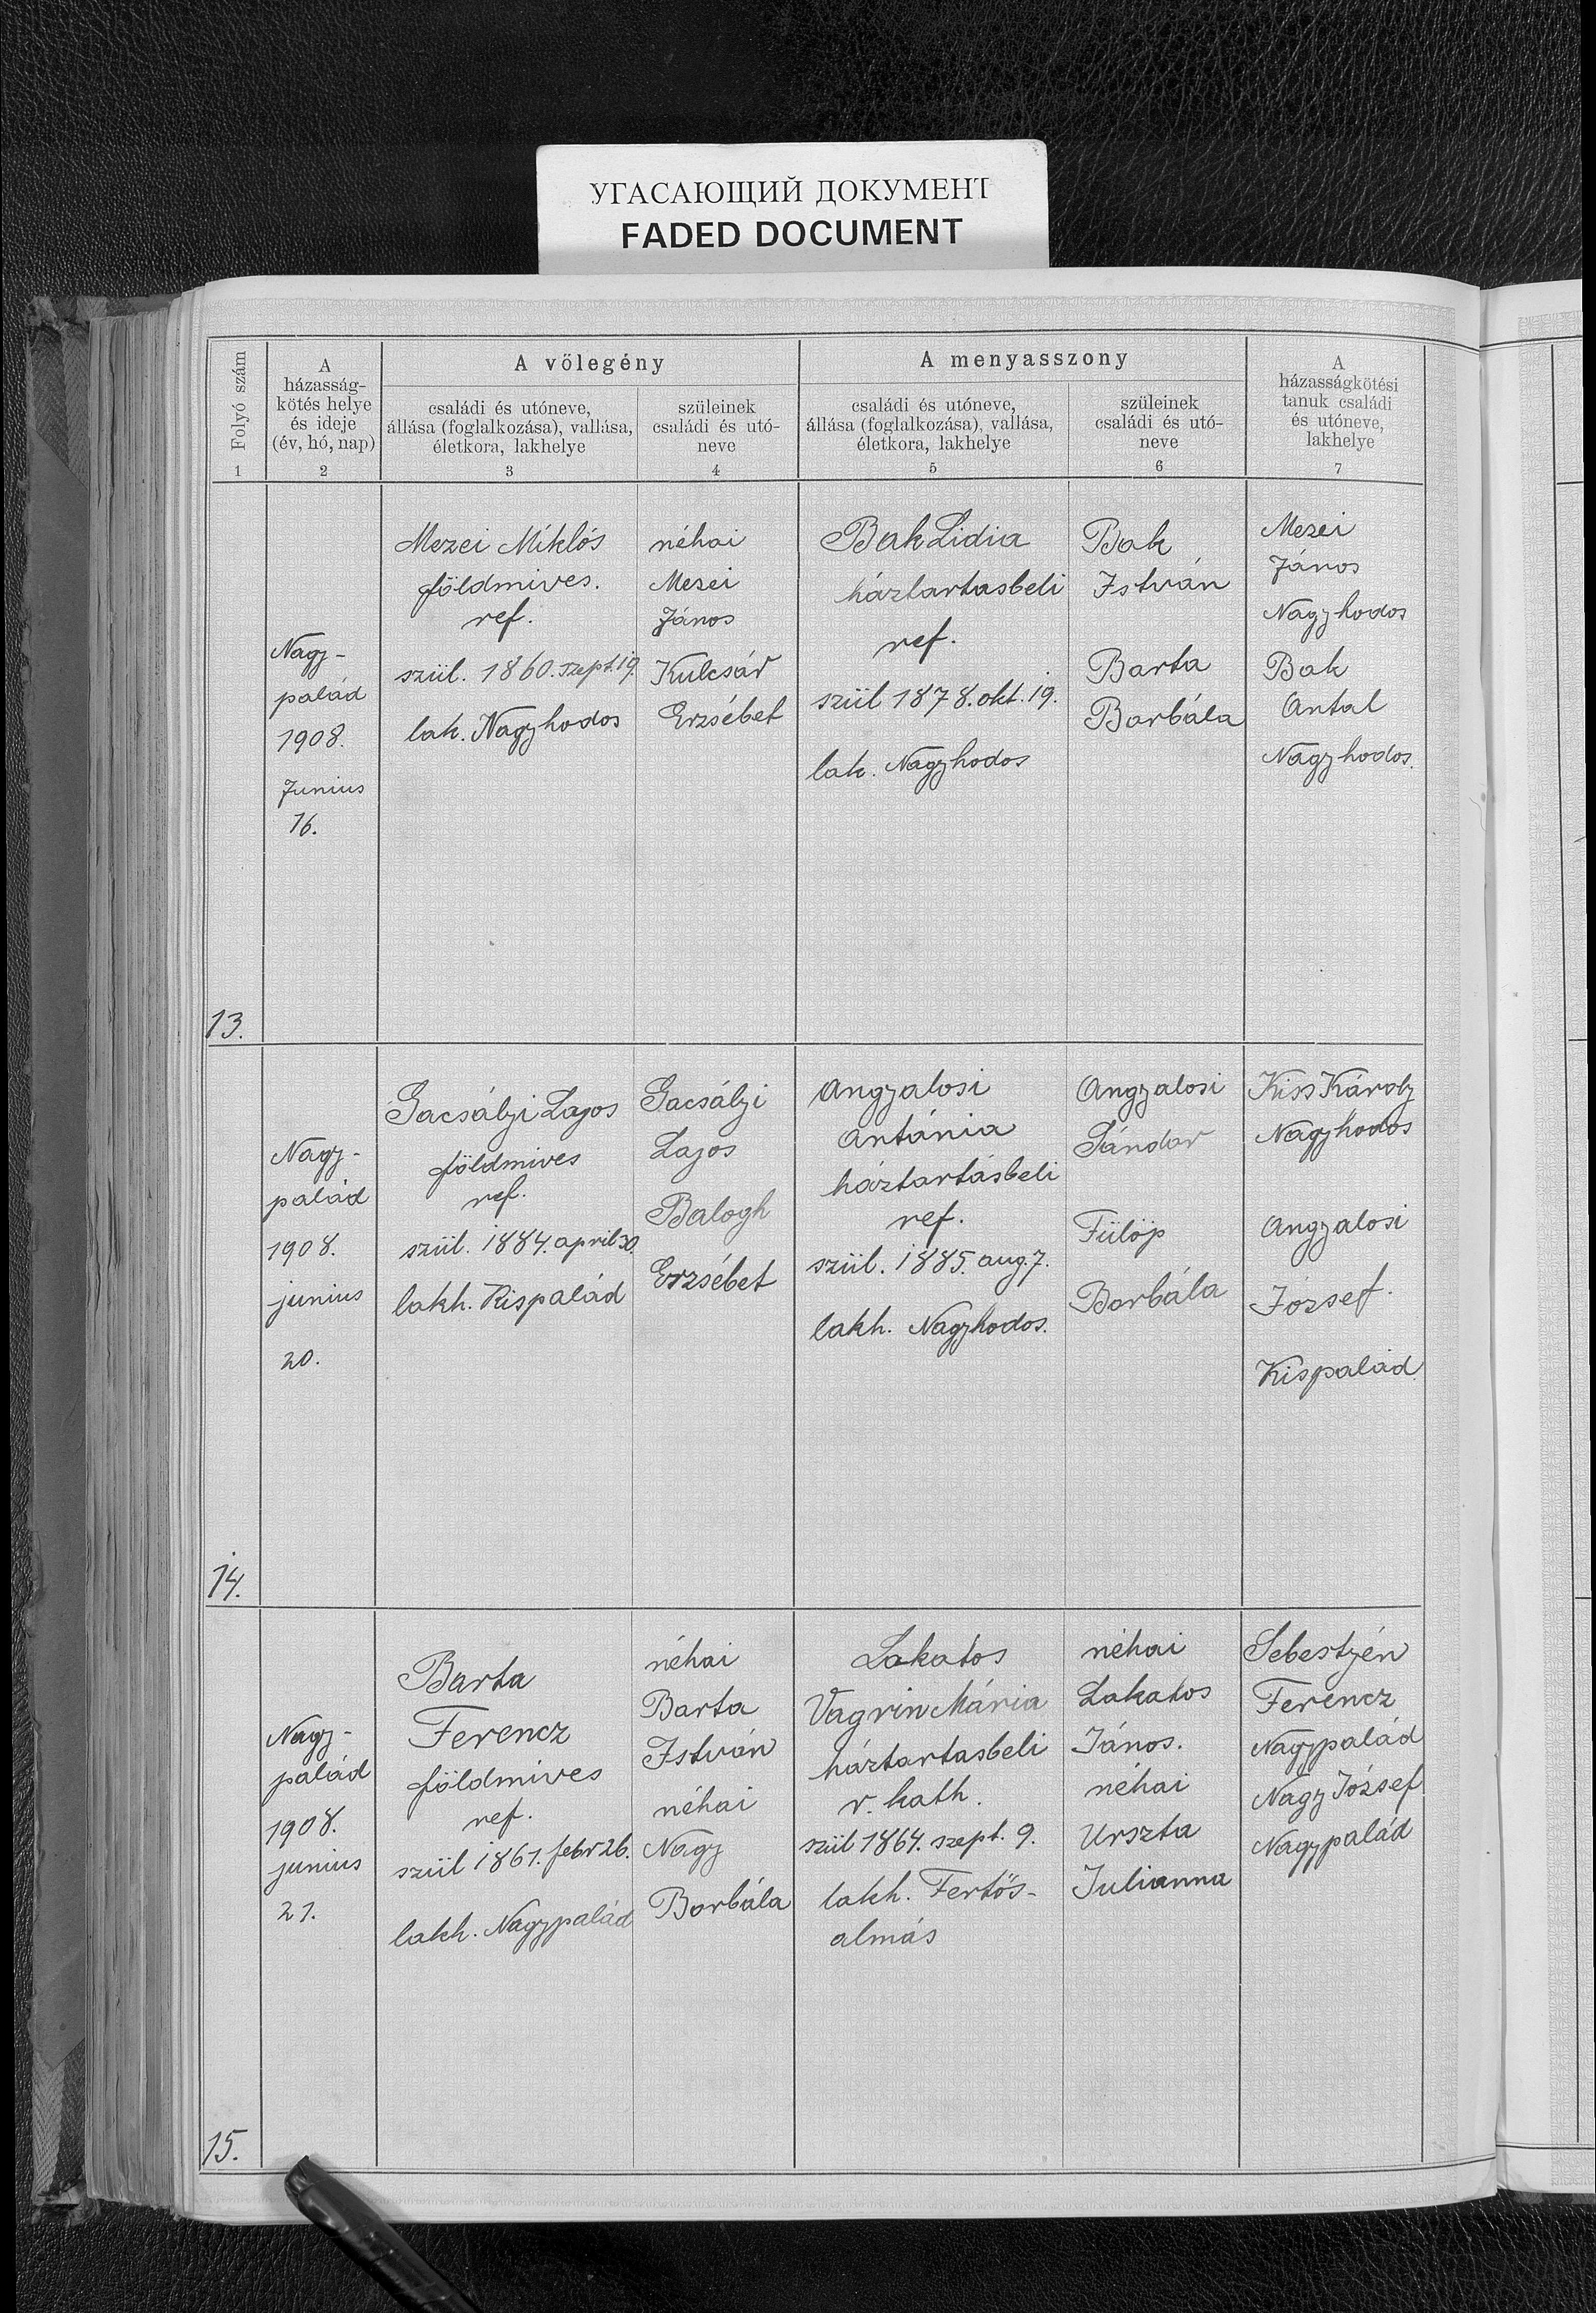 УГАСАЮЩИЙ ДОКУМЕНТ
FADED DOCUMENT
Folyó szám
1
A
házasság-
kötés helye
és ideje
(év, hó, nap)
2
A völegény
családi és utóneve,
állása (foglalkozása), vallása,
életkora, lakhelye
3
szüleinek
családi és utó-
neve
4
A menyasszony
családi és utóneve,
állása (foglalkozása), vallása,
életkora, lakhelye
5
szüleinek
családi és utó-
neve
6
A
házasságkötési
tanuk családi
és utóneve,
lakhelye
7
13.
Nagy-
palád
1908.
Junius
16.
Mezei Miklós
földmives.
ref.
szül. 1860. szept. 19.
lak. Nagyhodos
néhai
Mezei
János
Kulcsár
Erzsébet
Bak Lidia
háztartasbeli
ref.
szül 1878. okt. 19.
lak. Nagyhodos
Bak
István
Barta
Borbála
Mezei
János
Nagyhodos
Bak
Antal
Nagyhodos.
14.
Nagy-
palád
1908.
junius
20.
Gacsályi Lajos
földmives
ref.
szül. 1884. april 30.
lakh. Kispalád
Gacsályi
Lajos
Balogh
Erzsébet
Angyalosi
Antánia
háztartásbeli
ref.
szül. 1885. aug. 7.
lakh. Nagyhodos.
Angyalosi
Sándor
Fülöp
Borbála
Kiss Károly
Nagyhodos
Angyalosi
József.
Kispalád.
15.
Nagy-
palád
1908.
junius
21.
Barta
Ferencz
földmives
ref.
szül 1861. febr 26.
lakh. Nagypalád
néhai
Barta
István
néhai
Nagy
Borbála
Lakatos
Vagrin Mária
háztartasbeli
r. kath.
szül 1864. szept. 9.
lakh. Fertős-
almás
néhai
Lakatos
János.
néhai
Urszta
Julianna
Sebestyén
Ferencz
Nagypalád
Nagy József
Nagypalád